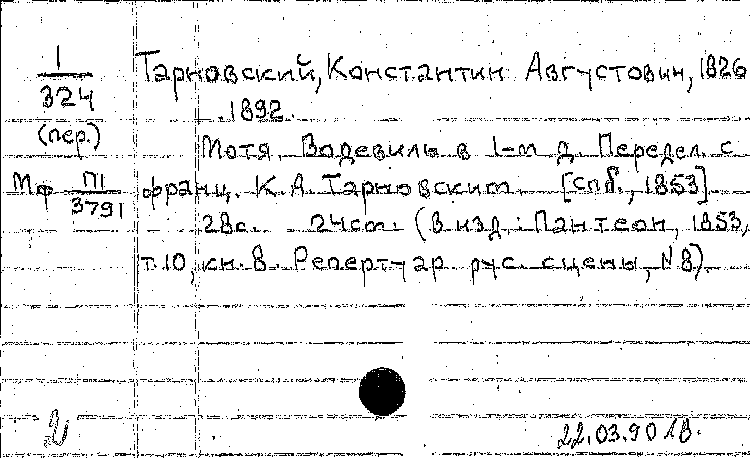 1
324
(пер.)
Мф П1
3791
Тарновский, Константин Августович, 1826
1892.
Мотя. Водевиль в 1-м д. Передел. с
франц. К. А. Тарновским. [Спб., 1853].
28с. 24см. (В изд.: Пантеон, 1853,
т.10, кн. 8. Репертуар рус. сцены, N8).
22.03.90